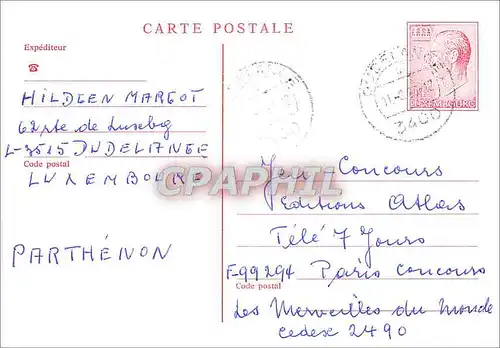 CARTE POSTALE
Expéditeur
HILDGEN MARGOT
62 rte de Luxbg
L-3515 DUDELANGE
Code postal
LUXEMBOURG
PARTHÉNON
LUXEMBOURG
3400
Jeu-Concours
Editions Atlas
Télé 7 Jours
F-99294 Paris Concours
Code postal
Les Merveilles du Monde
Cedex 2490
CPAPHIL